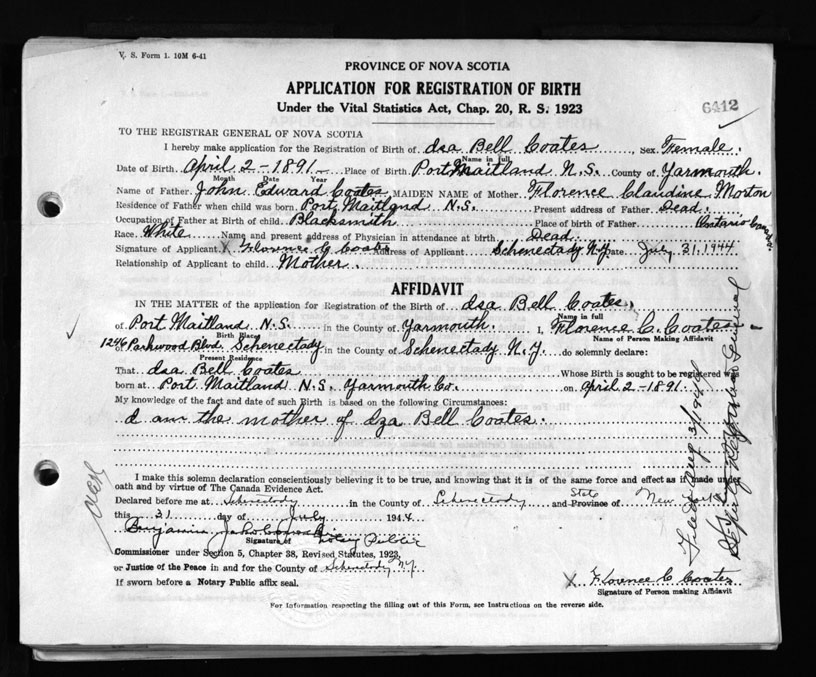 V. S. Form 1. 10M 6-41
PROVINCE OF NOVA SCOTIA
APPLICATION FOR REGISTRATION OF BIRTH
Under the Vital Statistics Act, Chap. 20, R. S. 1923
6412
TO THE REGISTRAR GENERAL OF NOVA SCOTIA
I hereby make application for the Registration of Birth of Isa Bell Coates, Sex Female.
Name in full
Date of Birth April 2 - 1891 Place of Birth Port Maitland N.S. County of Yarmouth.
Month Date Year
Name of Father John Edward Coates MAIDEN NAME of Mother Florence Claudine Morton
Residence of Father when child was born Port Maitland N.S. Present address of Father Dead.
Occupation of Father at Birth of child Blacksmith Place of birth of Father Ontario
Race White Name and present address of Physician in attendance at birth Dead
Signature of Applicant X Florence C Coates Address of Applicant Schenectady N.Y. Date July 31, 1944
Relationship of Applicant to child Mother.
AFFIDAVIT
IN THE MATTER of the application for Registration of the Birth of Isa Bell Coates,
Name in full
of Port Maitland N.S. in the County of Yarmouth. I, Florence C. Coates
Birth Place Name of Person Making Affidavit
1246 of Parkwood Blvd. Schenectady in the County of Schenectady N.Y. do solemnly declare:
Present Residence
That Isa Bell Coates Whose Birth is sought to be registered was
born at Port Maitland N.S. Yarmouth Co. on April 2 - 1891
My knowledge of the fact and date of such Birth is based on the following Circumstances:
I am the mother of Iza Bell Coates.
I make this solemn declaration conscientiously believing it to be true, and knowing that it is of the same force and effect as if made under
oath and by virtue of The Canada Evidence Act.
Declared before me at Schenectady in the County of Schenectady State and Province of New York
this 31 day of July 1944
Benjamin Notary Public
Signature of
Commissioner under Section 5, Chapter 38, Revised Statutes, 1923,
or Justice of the Peace in and for the County of Schenectady N.Y.
If sworn before a Notary Public affix seal.
X Florence C Coates
Signature of Person making Affidavit
For Information respecting the filling out of this Form, see Instructions on the reverse side.
Filed Aug 3/1944
Deputy Registrar General